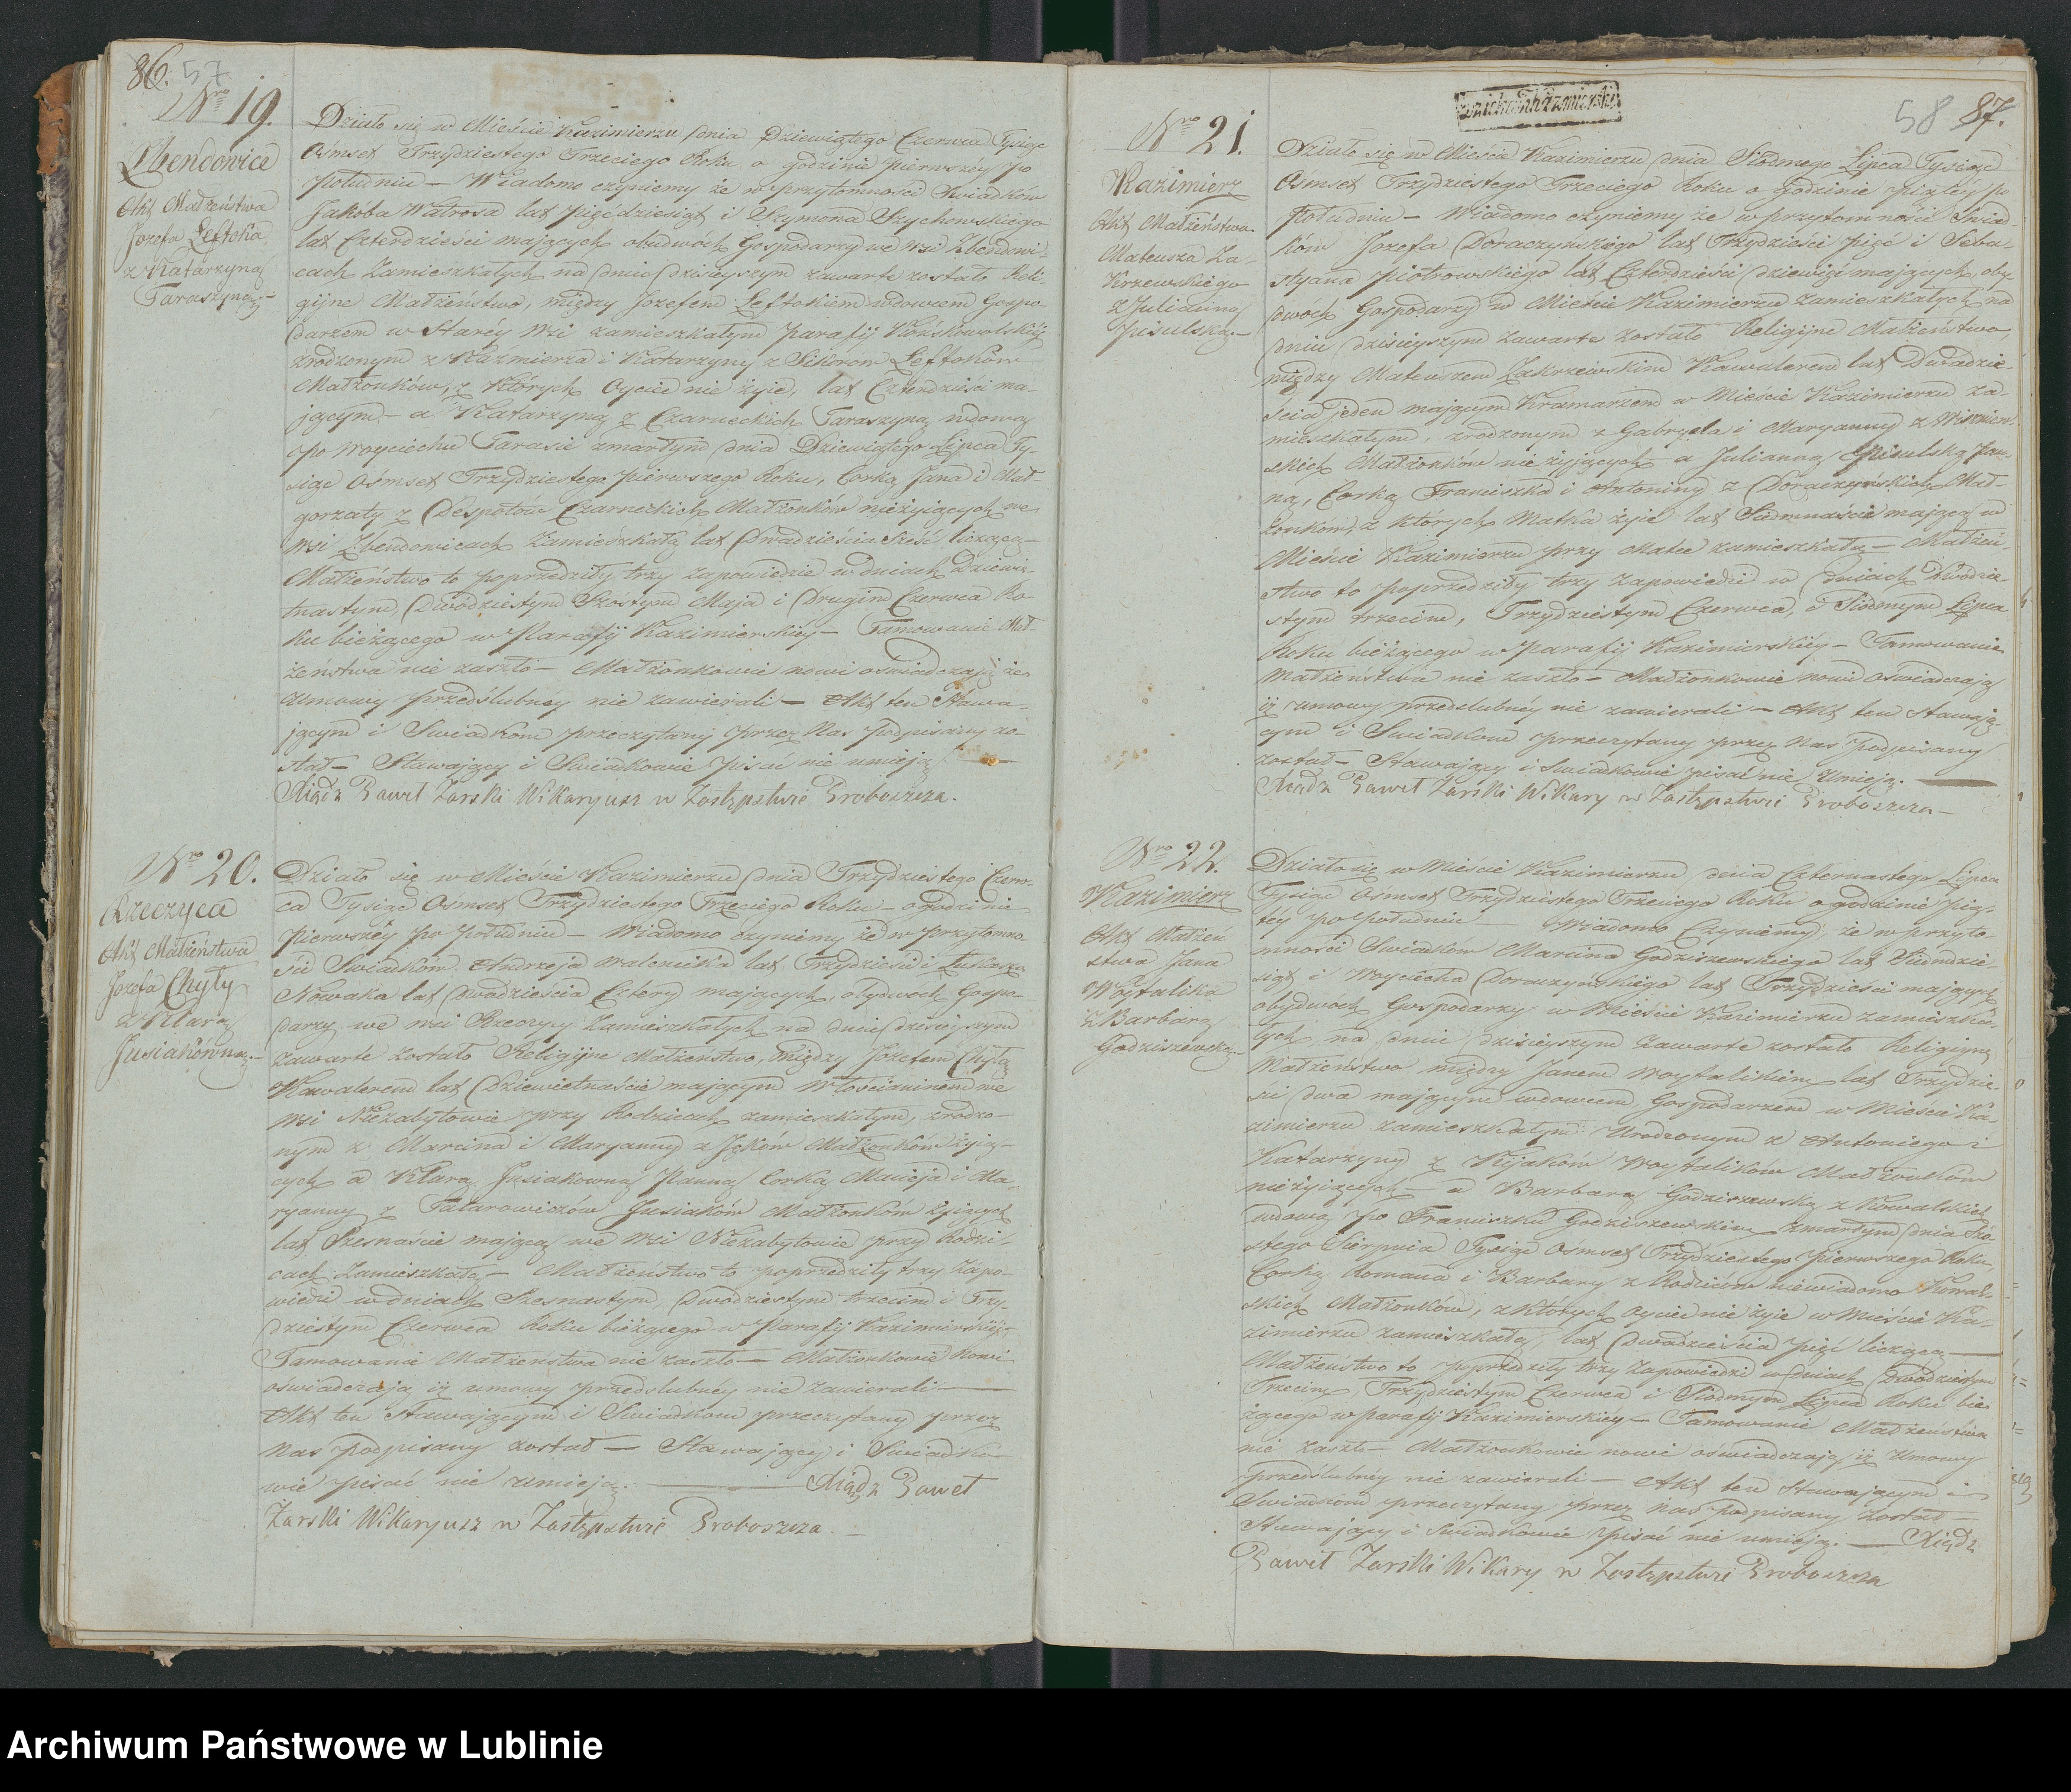 86. 57
Nro 19.
Zbendowice
Akt Małżeństwa
Jozefa Leftoka
z Katarzyną
Taraszyną.
Działo się w Mieście Kazimierzu dnia Dziewiątego Czerwca Tysiąc
Ośmset Trzydziestego Trzeciego Roku o godzinie pierwszéy po
południu – Wiadomo czyniemy że w przytomności Swiadków
Jakóba Watrosa lat pięćdziesiąt i Szymona Szychowskiego
lat Czterdzieści mających obudwóch Gospodarzy we wsi Zbendowi-
cach Zamieszkałych na dniu dzisieyszym zawarte zostało Reli-
gijne Małżeństwo, między Jozefem Leftokiem wdowcem Gospo-
darzem w Starey Wsi zamieszkałym parafij Końskowolskiéj
zrodzonym z Kaźmierza i Katarzyny z Sikorow Leftoków
Małżonków, z których Oyciec nie żyie, lat Czterdzieści ma-
jącym – a Katarzyną z Czarneckich Taraszyną wdową
po Woyciechu Tarasie zmarłym dnia Dziewiątego Lipca Ty-
siąc Ośmset Trzydziestego pierwszego Roku, Corką Jana i Mał-
gorzaty z Despotów Czarneckich Małżonków nieżyiących we
wsi Zbendowicach Zamieszkałą lat Dwadzieścia Sześć liczącą –
Małżeństwo to poprzedziły trzy zapowiedzie w dniach Dziewię-
tnastym, Dwódziestym Szóstym Maja i Drugim Czerwca Ro-
ku bieżącego w Parafij Kazimierskiéy – Tamowanie Mał-
żeństwa nie zaszło – Małżonkowie nowi oświadczają że
umowy przedślubnéy nie zawierali – Akt ten Stawa-
jącym i Swiadkom przeczytany przez Nas podpisany zo-
stał – Stawający i Swiadkowie pisać nie umieją.
Xiądz Paweł Zarski Wikaryusz w Zastępstwie Proboszcza.
Nro 20.
Rzeczyca
Akt Małżeństwa
Jozefa Chyły
z Klarą
Jusiakówną.
Działo się w Mieście Kazimierzu dnia Trzydziestego Czerw-
ca Tysiąc Ośmset Trzydziestego Trzeciego Roku – o godzinie
pierwszéy po południu – Wiadomo czyniemy że w przytomno-
ści Swiadków Andrzeja Walencika lat Trzydzieści i Łukasza
Nowaka lat Dwadzieścia Cztery mających, obydwóch Gospo-
darzy we wsi Rzeczycy Zamieszkałych na dniu dzisieyszym
zawarte zostało Religijne Małżeństwo, między Jozefem Chyłą
Kawalerem lat Dziewietnaście mającym Włościaninem we
wsi Niezabytowie przy Rodzicach zamieszkałym, zrodzo-
nym z Marcina i Maryanny z Jęków Małżonków żyią-
cych a Klarą Jusiakowną Panną Corką Macieja i Ma-
ryanny z Tatarowiczów Jusiaków Małżonków żyiących
lat Szesnaście mającą we wsi Niezabytowie przy Rodzi-
cach Zamieszkałą – Małżeństwo to poprzedziły trzy zapo-
wiedzi w dniach Szesnastym, Dwódziestym trzecim i Trzy-
dziestym Czerwca Roku bieżącego w Parafij Kazimierskiéj –
Tamowanie Małżeństwa nie zaszło – Małżonkowie Nowi
oświadczają iż umowy przedslubnéy nie zawierali –
Akt ten Stawającym i Swiadkom przeczytany przez
Nas podpisany został – Stawający i Swiadko-
wie pisać nie umieją. – Xiądz Paweł
Zarski Wikaryusz w Zastępstwie Proboszcza –
58 87.
Nro 21.
Kazimierz
Akt Małżeństwa
Mateusza Za-
krzewskiego
z Julianną
Pisulską.
Działo się w Mieście Kazimierzu dnia Siódmego Lipca Tysiąc
Ośmset Trzydziestego Trzeciego Roku o godzinie piątey po
południu – Wiadomo czyniemy że w przytomności Swiad-
ków Jozefa Doraczyńskiego lat Trzydzieści pięć i Seba-
styana Piotrowskiego lat Czterdzieści dziewięć mających, oby-
dwóch Gospodarzy w Mieście Kazimierzu zamieszkałych na
dniu dzisieyszym zawarte zostało Religijne Małżeństwo,
między Mateuszem Zakrzewskim Kawalerem lat Dwadzie-
ścia jeden mającym Kramarzem w Mieście Kazimierzu za-
mieszkałym, zrodzonym z Gabryela i Maryanny z Wiśniew-
skich Małżonków nieżyjących a Julianną Pisulską Pan-
ną, Corką Franciszka i Antoniny z Doraczyńskich Mał-
żonków, z których Matka żyie lat Siedmnaście mającą w
Mieście Kazimierzu przy Matce zamieszkałą – Małżeń-
stwo to poprzedziły trzy Zapowiedzi w dniach Dwódzie-
stym trzecim, Trzydziestym Czerwca, i Siódmym Lipca
Roku bieżącego w Parafij Kazimierskiéy – Tamowanie
Małżeństwa nie zaszło – Małżonkowie nowi oświadczają
iż umowy przedslubnéy nie zawierali – Akt ten Stawają-
cym i Swiadkom przeczytany przez Nas podpisany
został – Stawający i Swiadkowie pisać nie umieją. –
Xiądz Paweł Zarski Wikary w Zastępstwie Proboszcza –
Nro 22.
Kazimierz
Akt Małżeń
stwa Jana
Woytalika
z Barbarą
Godziszewską
Działo się w Mieście Kazimierzu dnia Czternastego Lipca
Tysiąc Ośmset Trzydziestego Trzeciego Roku o godzinie pią-
tey po południu – Wiadomo Czyniemy, że w przyto-
mności Swiadków Marcina Godziszewskiego lat Siedmdzie-
siąt i Woyciecha Doraczyńskiego lat Trzydzieści mających
obydwóch Gospodarzy w Mieście Kazimierzu zamieszka-
łych na dniu dzisieyszym zawarte zostało Religijne
Małżeństwo między Janem Woytalikiem lat Trzydzie-
ści dwa mającym wdowcem, Gospodarzem w Mieście Ka-
zimierzu zamieszkałym Urodzonym z Antoniego i
Katarzyny z Kijaków Woytalików Małżonków
nieżyiących – a Barbarą Godziszewską z Kowalskich
wdową po Franciszku Godziszewskim zmarłym dnia Szó-
stego Sierpnia Tysiąc Ośmset Trzydziestego pierwszego Roku,
Corką Romana i Barbary z Rodziców niewiadomo Kowal-
skich Małżonków, z których Oyciec nie żyie w Mieście Ka-
zimierzu zamieszkałą, lat Dwadzieścia pięć liczącą –
Małżeństwo to poprzedziły trzy Zapowiedzi w dniach Dwódziestym
Trzecim, Trzydziestym Czerwca i Siódmym Lipca Roku bie-
żącego w parafij Kazimierskiéy – Tamowanie Małżeństwa
nie zaszło – Małżonkowie nowi oświadczają iż Umowy
przedślubnéy nie zawierali – Akt ten Stawającym i
Swiadkom przeczytany przez nas podpisany został –
Stawający i Swiadkowie pisać nie umieją. – Xiądz
Paweł Zarski Wikary w Zastępstwie Proboszcza
Archiwum Państwowe w Lublinie